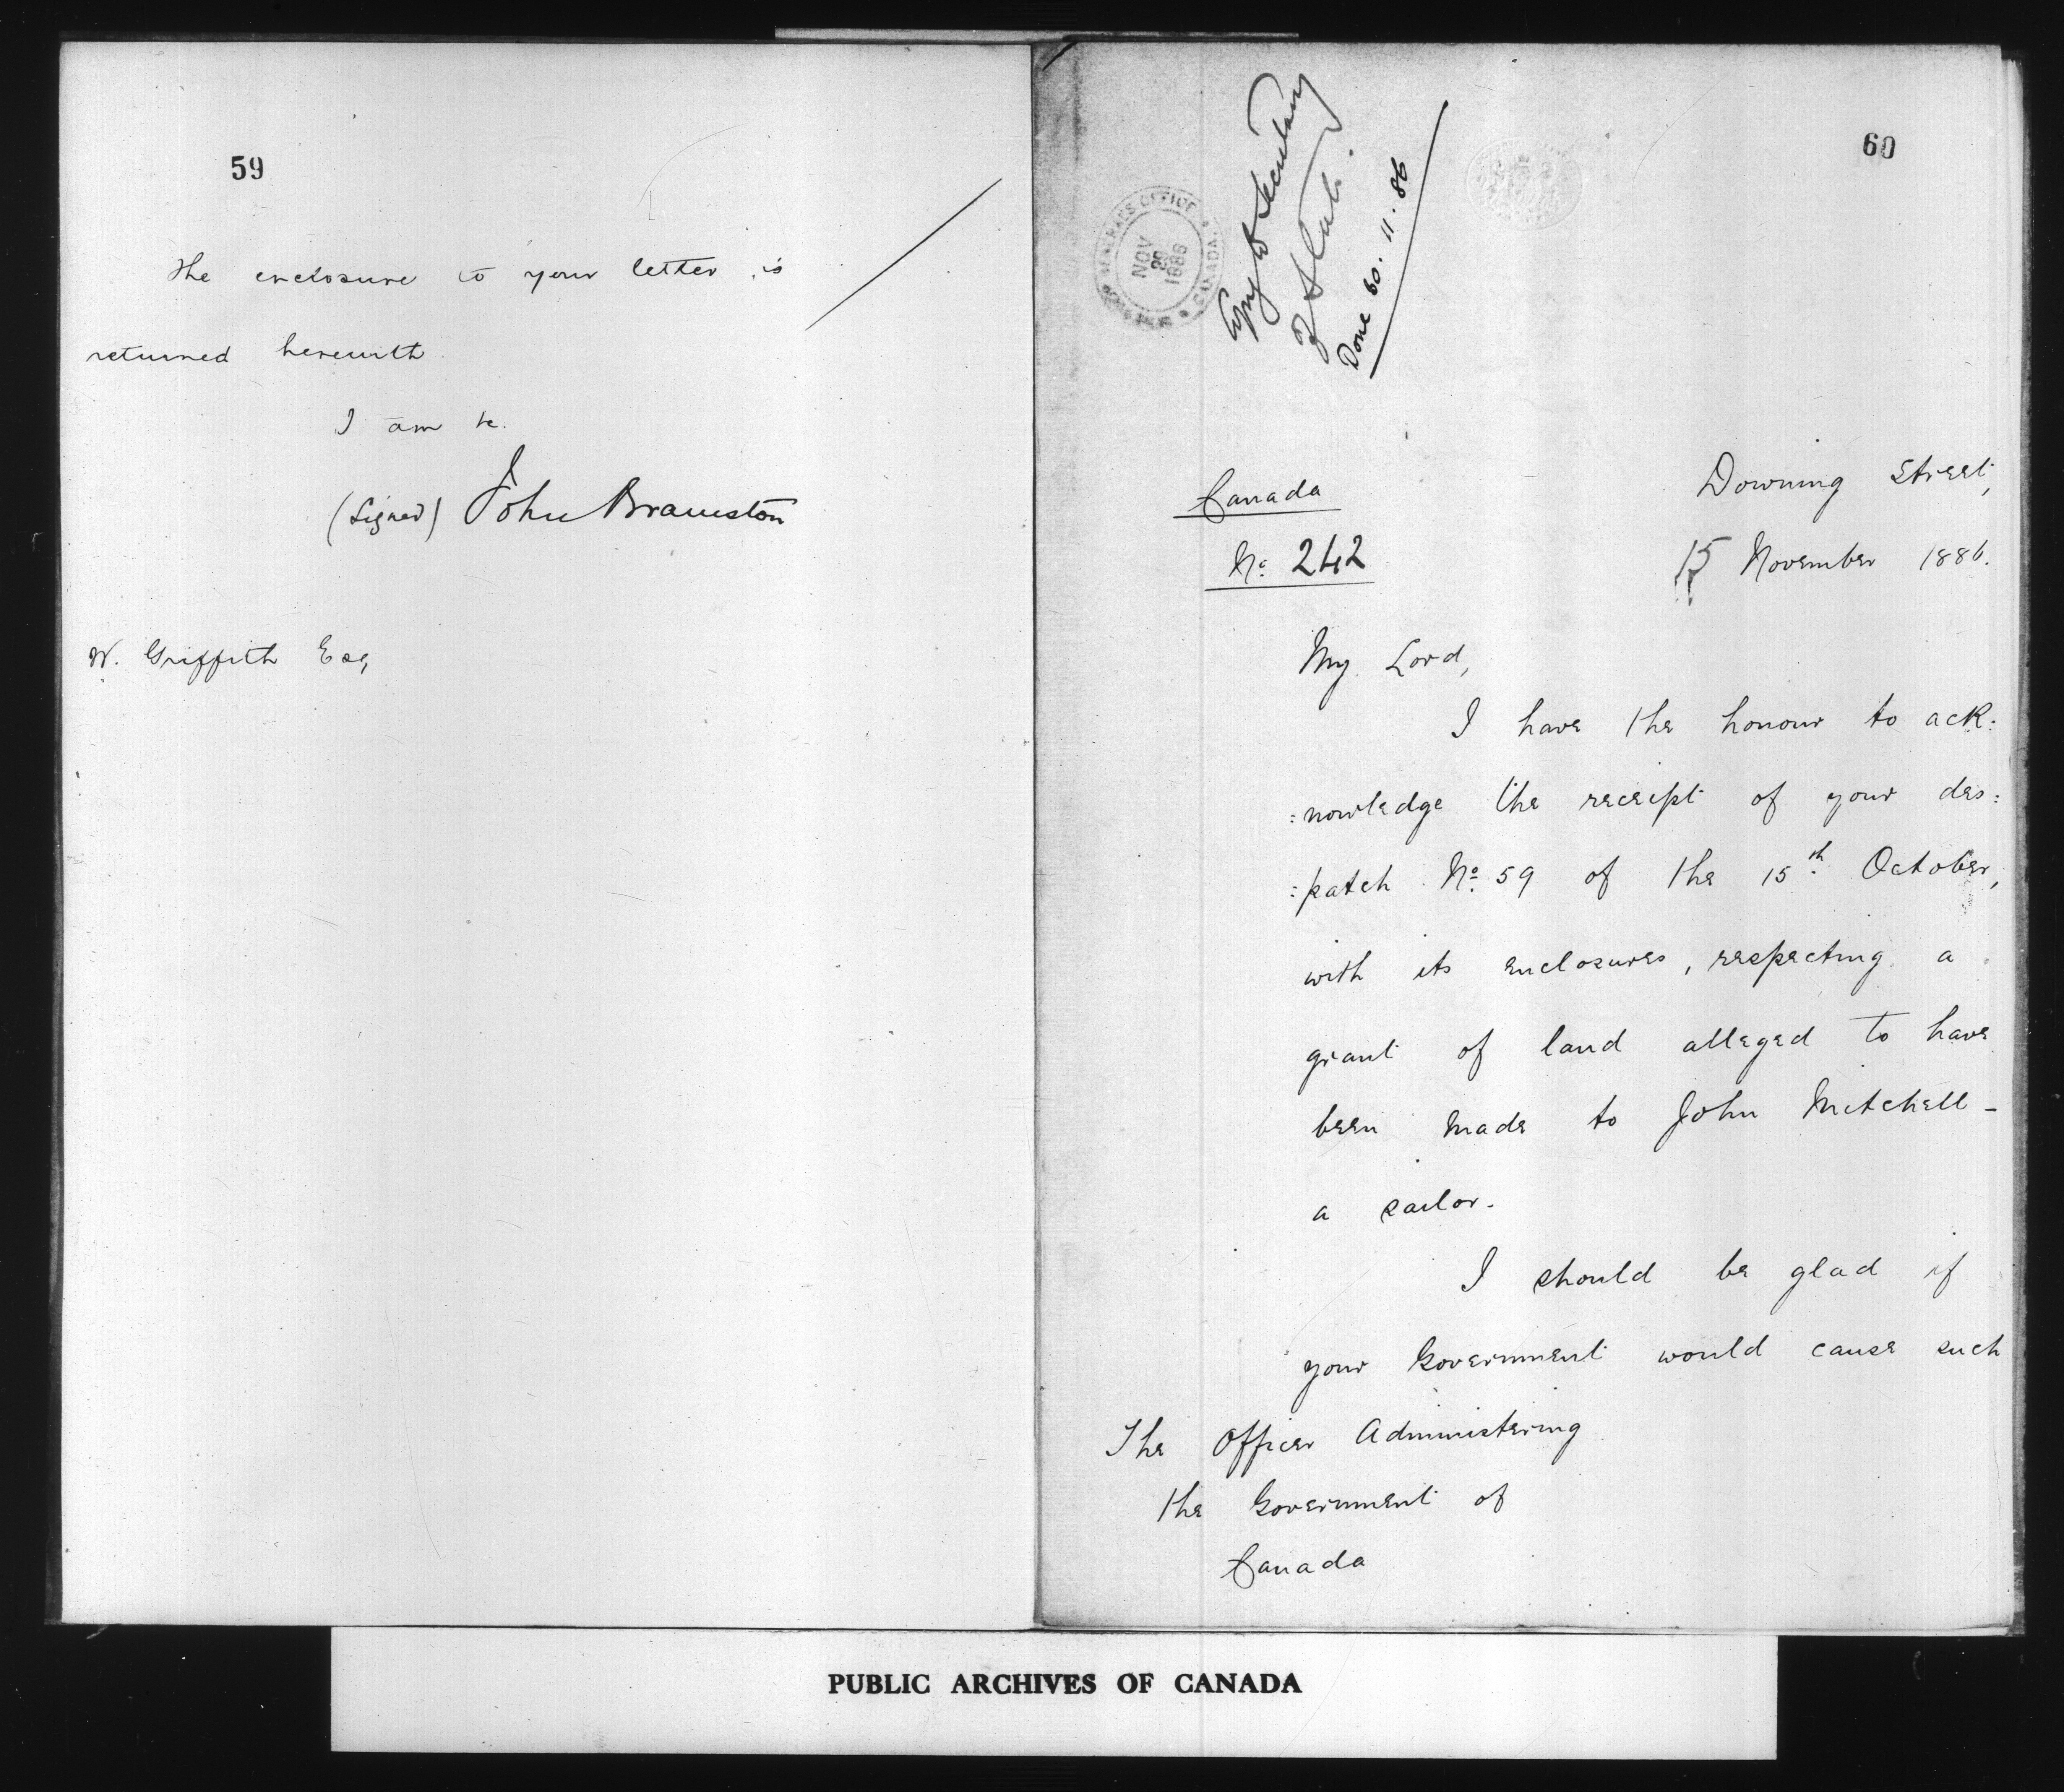 59
The enclosure to your letter is
returned herewith.
I am &c.
(Signed) John Bramston
W. Griffith Esq
60
GENERAL'S OFFICE
CANADA.
NOV
1886
Copy to Secretary
of State.
Done 30.11.86
Canada
No. 242
Downing Street,
15 November 1886.
My Lord,
I have the honour to ack:
:nowledge the receipt of your des:
:patch No. 59 of the 15th October,
with its enclosures, respecting a
grant of land alleged to have
been made to John Mitchell -
a sailor.
I should be glad if
your Government would cause such
The Officer Administering
the Government of
Canada
PUBLIC ARCHIVES OF CANADA